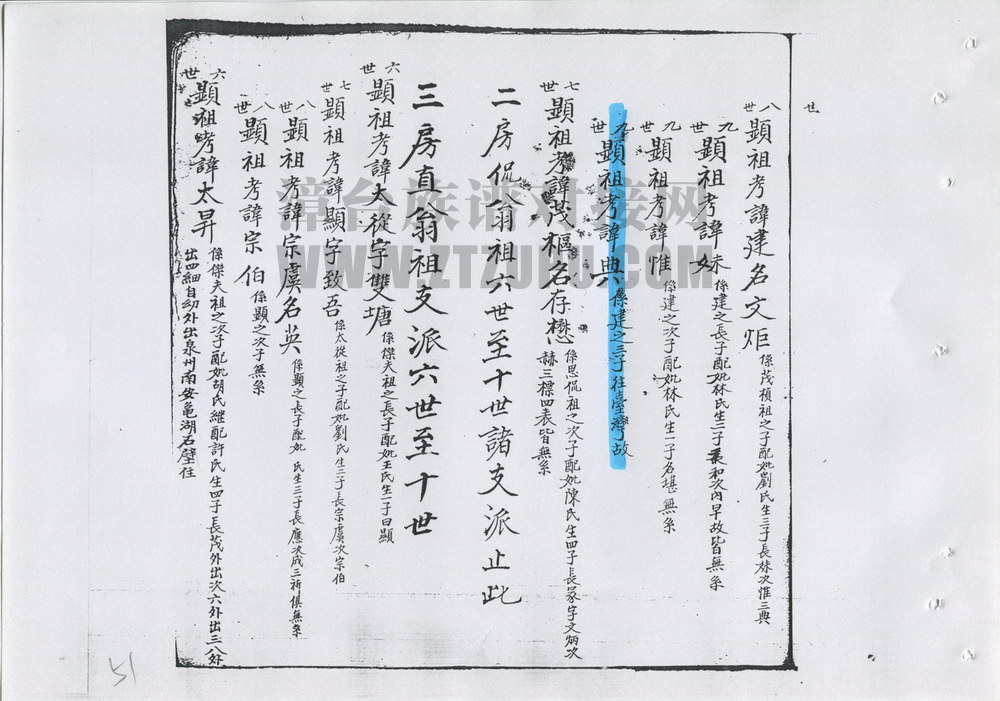 世
八世 顕祖考諱建名文炬 係茂禎祖之子配妣劉氏生三子長妹次惟三典
九世 顕祖考諱妹 係建之長子配妣林氏生二子長和次內早故皆無系
九世 顕祖考諱惟 係建之次子配妣林氏生一子名堪無系
九世 顕祖考諱典 係建之三子往臺灣故
七世 顕祖考諱茂樞名存懋 係思侃祖之次子配妣陳氏生四子長冢字文炳次
赫三標四表皆無系
二房侃翁祖六世至十世諸支派止此
三房直翁祖支派六世至十世
六世 顕祖考諱太從字雙塘 係傑夫祖之長子配妣王氏生一子曰顯
七世 顕祖考諱顯字致吾 係太從祖之子配妣劉氏生二子長宗虞次宗伯
八世 顕祖考諱宗虞名英 係顯之長子配妣 氏生三子長應次成三祈俱無系
八世 顕祖考諱宗伯 係顯之次子無系
六世 顕祖考諱太昇 係傑夫祖之次子配妣胡氏継配許氏生四子長茂外出次六外出三八外
出四細自幼外出泉州南安亀湖石壁住
漳台族谱对接网
WWW.ZTZUPU.COM
51